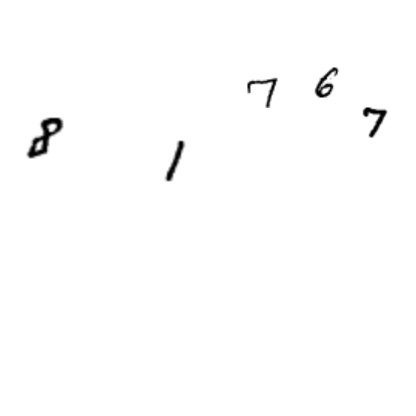 8 1 7 6 7